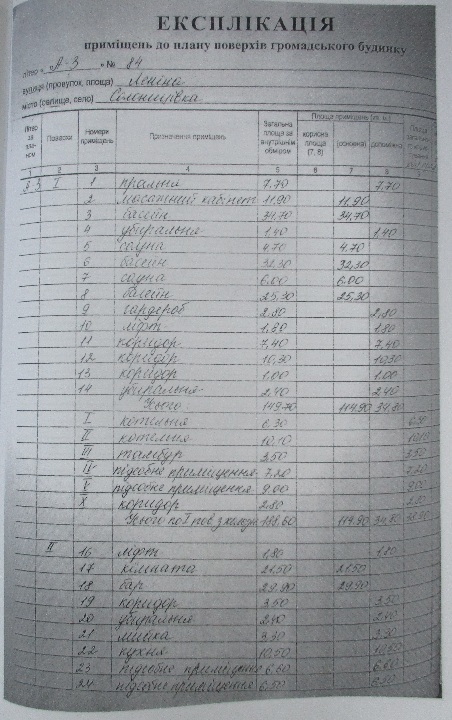 ЕКСПЛІКАЦІЯ
приміщень до плану поверхів громадського будинку
літер « А-3 » № 84
вулиця (провулок, площа) Леніна
місто (селища, село)
Літер за планом Поверхи Номери приміщень Призначення приміщень Загальна площа за внутрішнім обміром Площа приміщень (кв. м.) корисна площа (7, 8) (основна) (допоміжна)
1 2 3 4 5 6 7 8
I 1 пральня 7.70 7.70
2 масажний кабінет 11.90 11.90
3 басейн 34,70 34,70
4 убиральня 1.40 1.40
5 сауна 4.70 4.70
6 басейн 32,30 32,30
7 сауна 6.00 6.00
8 басейн 25,30 25,30
9 гардероб 2.80 2.80
10 ліфт 1.80 1.80
11 коридор 7,40 7,40
12 коридор 10,30 10,30
13 коридор 1.00 1.00
14 убиральня 2,40 2,40
Усього 149.70 114.90 34.80
I котельня 6.30 6.30
II котельня 10,10 10,10
III тамбур 3,50 3,50
IV підсобне приміщення 7,20 7,20
V підсобне приміщення 9.00 9.00
X коридор 2.80 2.80
Усього по I пов з холодн 188.60 114.90 34.80 38.90
II 16 ліфт 1.80 1.80
17 кімната 21,50 21,50
18 бар 29.90 29,90
19 коридор 3,50 3,50
20 убиральня 2,40 2,40
21 мийка 3.30 3.30
22 кухня 10,50 10,50
23 підсобне приміщення 6,60 6,60
24 підсобне приміщення 6,50 6,50